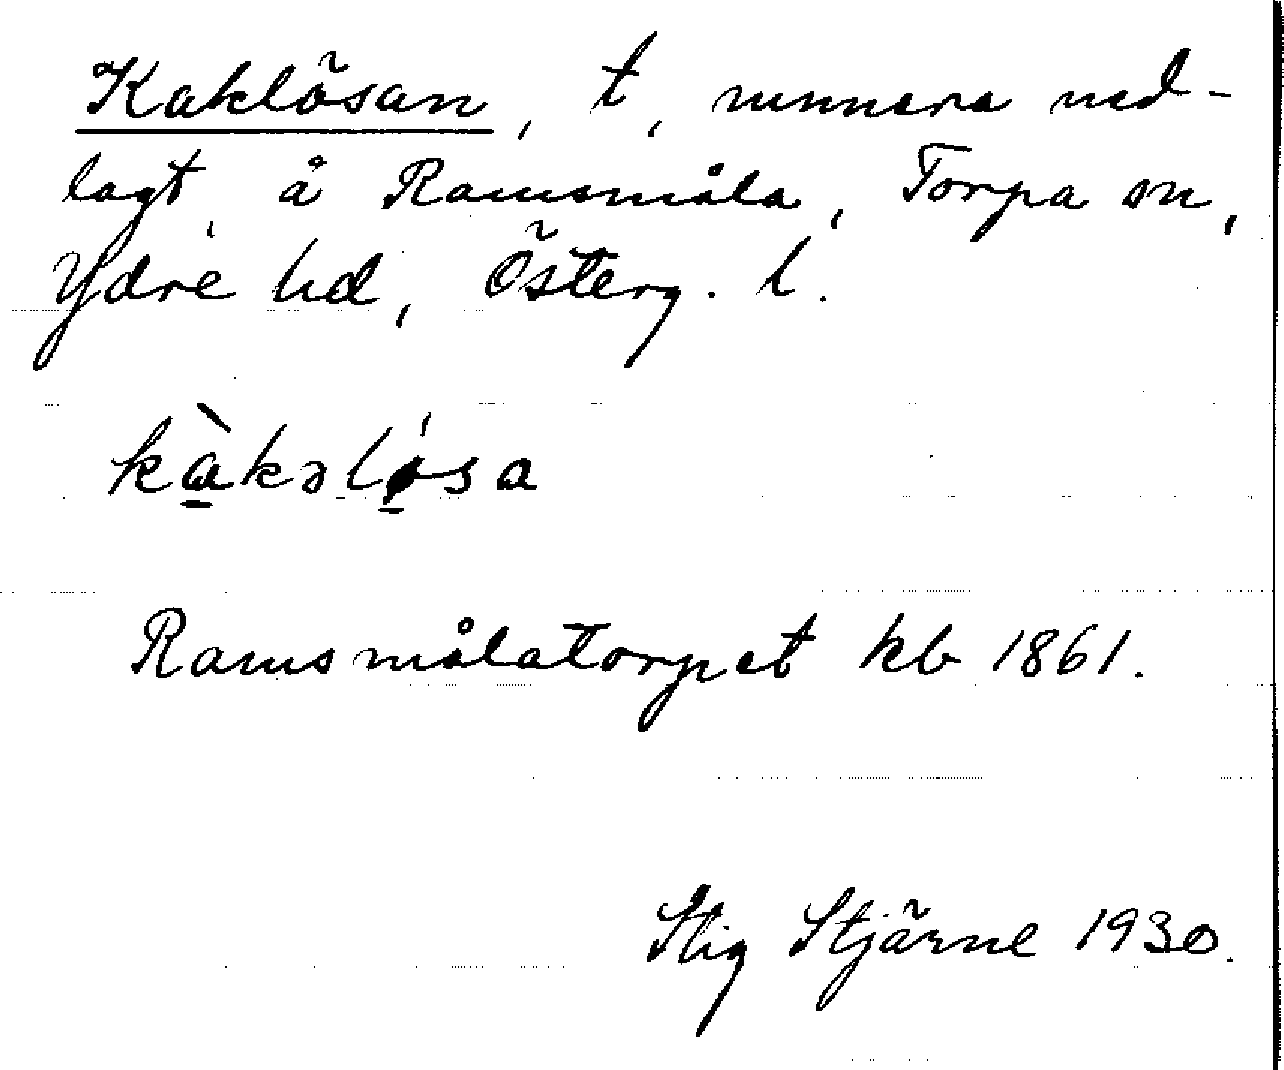 Kaklösan, t, numera ned-
lagt, å Ramsmåla, Torpa sn,
Ydre hd, Österg. l.
kàkəlǿsa
Ramsmålatorpet kb 1861.
Stig Stjärne 1930.